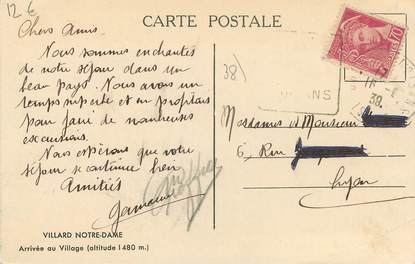 12 €
CARTE POSTALE
Chers Amis.
Nous sommes enchantés
de notre séjour dans un
beau pays. Nous avons un
temps superbe et en profitons
pour faire de nombreuses
excursions.
Nous espérons que votre
séjour se continue bien
Amitiés
38)
70
39
Mesdames et Monsieur
6, Rue
Lyon
VILLARD NOTRE-DAME
Arrivée au Village (altitude 1480 m.)